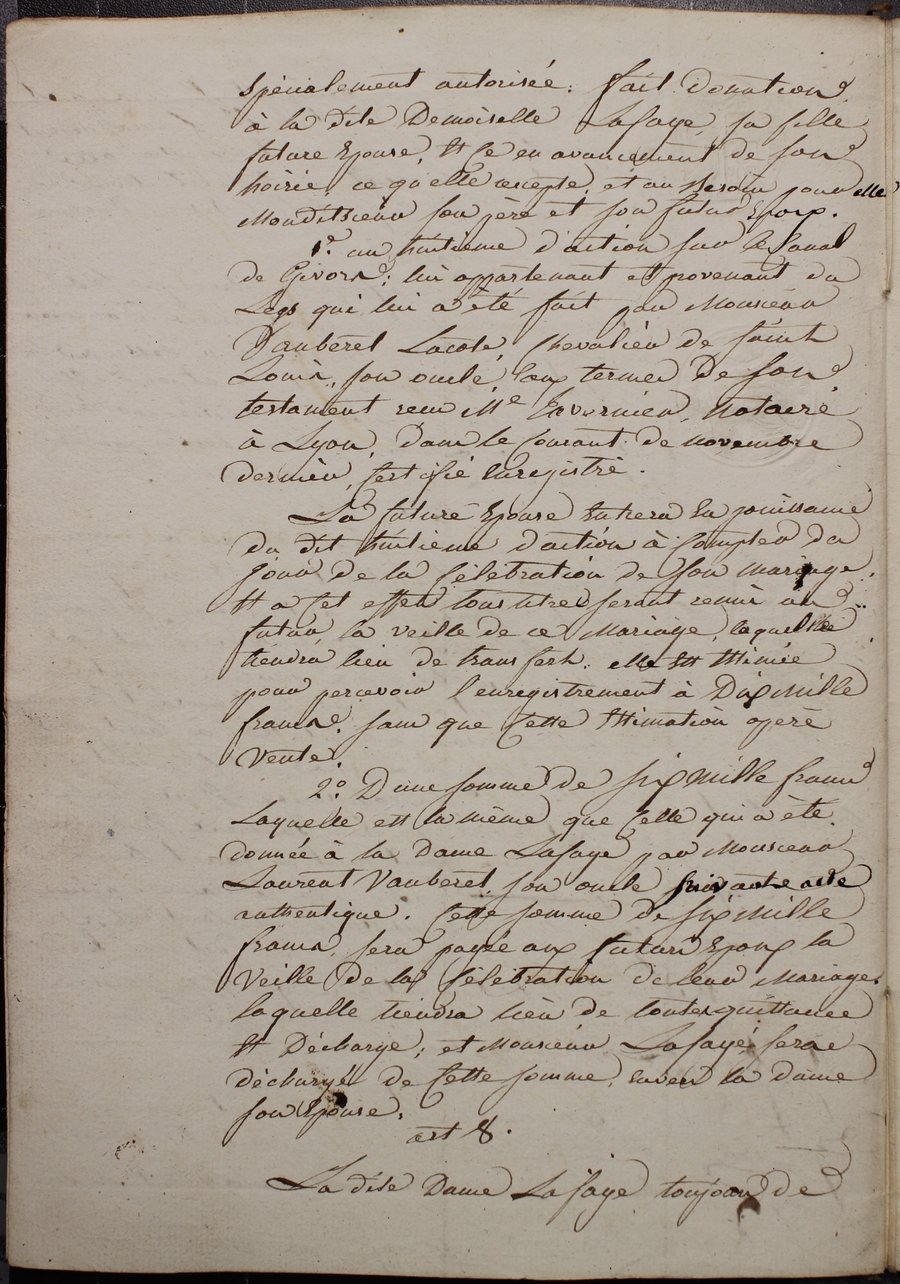 spécialement autorisée : fait donation
à la dite Demoiselle Lafaye, sa fille
future Epouse, Et Ce en avancement de son
hoirie, ce qu'elle accepte, et au besoin pour elle
Monditsieur son père et son futur Epoux.
1.° un huitieme d'action sur le Canal
de Givors ; lui appartenant et provenant du
Legs qui lui a été fait par Monsieur
Vauberet Lacote, Chevalier de Saint
Louis, son oncle, aux termes De son
testament recu Me Tavernier, Notaire
à Lyon, dans le Courant de novembre
dernier, Certifié Enregistré.
La future Epouse Entrera En jouissance
du dit huitieme d'action à Compter du
jour de la Célébration de son mariage.
Et a Cet effet tous titres seront remis au
futur, la veille de ce Mariage, laquelle
tiendra lieu de transfert. elle Est Estimée
pour percevoir l'enregistrement à Dix Mille
francs. sans que Cette Estimation opere
Vente.
2.° D'une somme de six Mille francs
Laquelle est la même que Celle qui a été
donnée à la Dame Lafaye par Monsieur
Laurent Vauberet, son oncle suivant acte
authentique. Cette somme de six Mille
francs, sera payée aux futurs Epoux la
Veille de la Célébration de leur Mariage.
laquelle tiendra lieu de toutes quittance
Et Décharge ; et Monsieur Lafaye, sera
déchargé de Cette somme, envers la dame
son Epouse.
art 8.
La dite Dame Lafaye toujours de